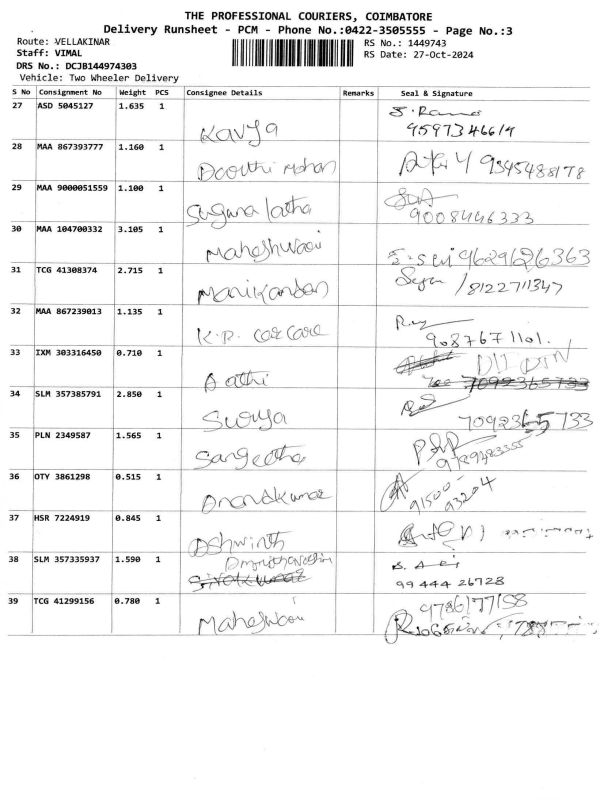 THE PROFESSIONAL COURIERS, COIMBATORE
Delivery Runsheet - PCM - Phone No.:0422-3505555 - Page No.:3
Route: VELLAKINAR
RS No.: 1449743
Staff: VIMAL
RS Date: 27-Oct-2024
DRS No.: DCJB144974303
Vehicle: Two Wheeler Delivery
S No Consignment No Weight PCS Consignee Details Remarks Seal & Signature
27 ASD 5045127 1.635 1 Kavya
28 MAA 867393777 1.160 1 Mohan 9345488178
29 MAA 9000051559 1.100 1 Suguna latha 9008446333
30 MAA 104700332 3.105 1 Maheshwari 9629626363
31 TCG 41308374 2.715 1 Manikandan 8122711347
32 MAA 867239013 1.135 1 K.P. car care 9087671101.
33 IXM 303316450 0.710 1 Aathi
34 SLM 357385791 2.850 1 Surya 7092365733
35 PLN 2349587 1.565 1 Sangeetha
36 OTY 3861298 0.515 1 Anandkumar 91500-
93204
37 HSR 7224919 0.845 1 Ashwinth
38 SLM 357335937 1.590 1
99444 26728
39 TCG 41299156 0.780 1 Maheshwari 9786177158